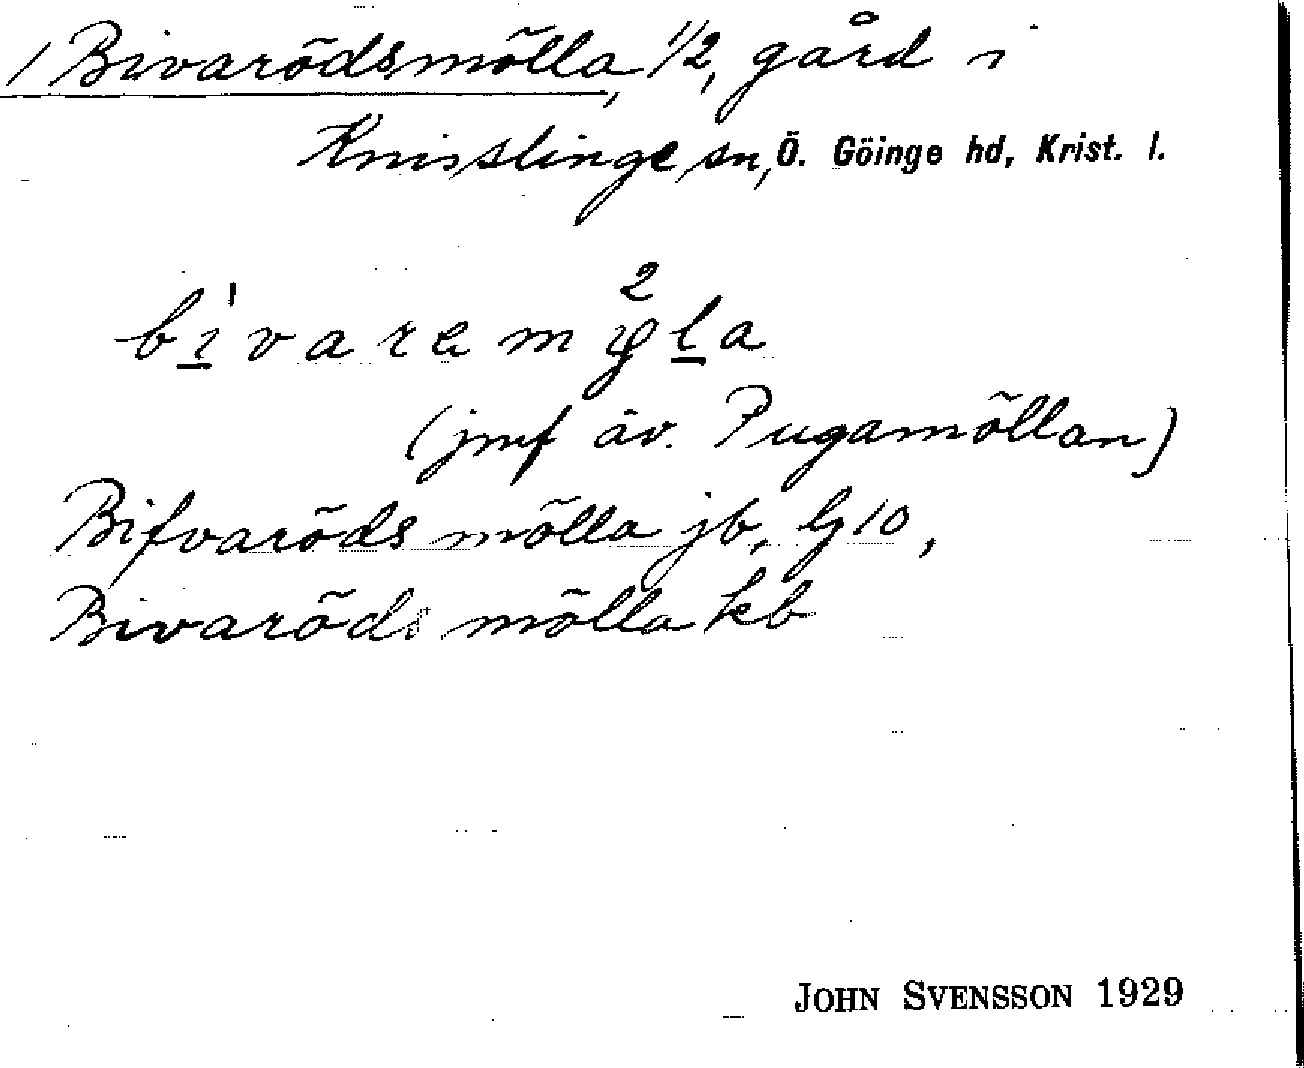 1 Bivarödsmölla, 1/2, gård i
Knislinge sn, Ö. Göinge hd, Krist. l.
(jmf äv. Pugamöllan)
Bifvaröds mölla jb, Gj 10,
Bivaröds mölla kb
JOHN SVENSSON 1929